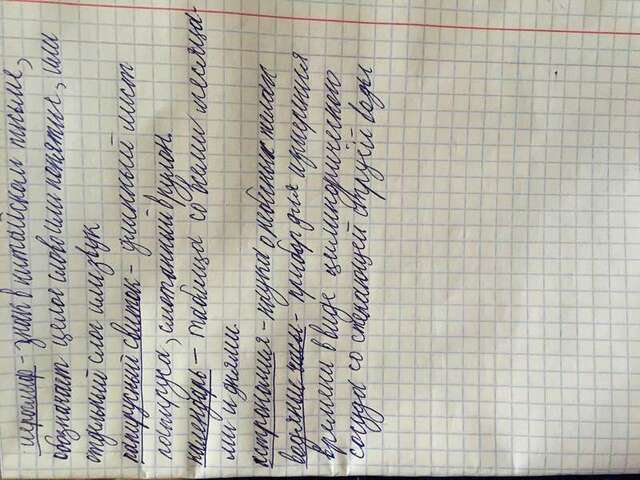 иероглиф - знак в китайском письме,
обозначает целое слово или понятие, или
отдельный слог или звук
папирусный свиток - длинный лист
папируса, смотанный в рулон.
календарь - таблица со всеми месяца-
ми и днями.
астрономия - наука о небесных телах
водяные часы - прибор для измерения
времени в виде цилиндрического
сосуда со стекающей струёй воды